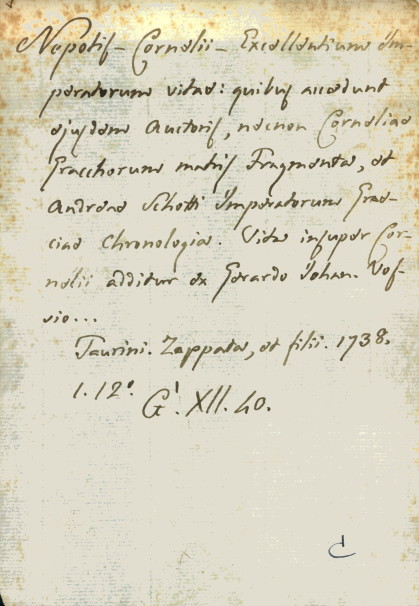 Nepotis - Cornelii - Excellentium Im-
peratorum vitae: quibus accedunt
ejusdem Auctoris, necnon Corneliae
Gracchorum matris Fragmenta, et
Andreae Schotti Imperatorum Grae-
ciae Chronologia. Vita insuper Cor-
nelii additur ex Gerardo Johan. Vos-
sio...
Taurini. Zappata, et filii. 1738.
1. 12°.
G'. XII. 40.
C